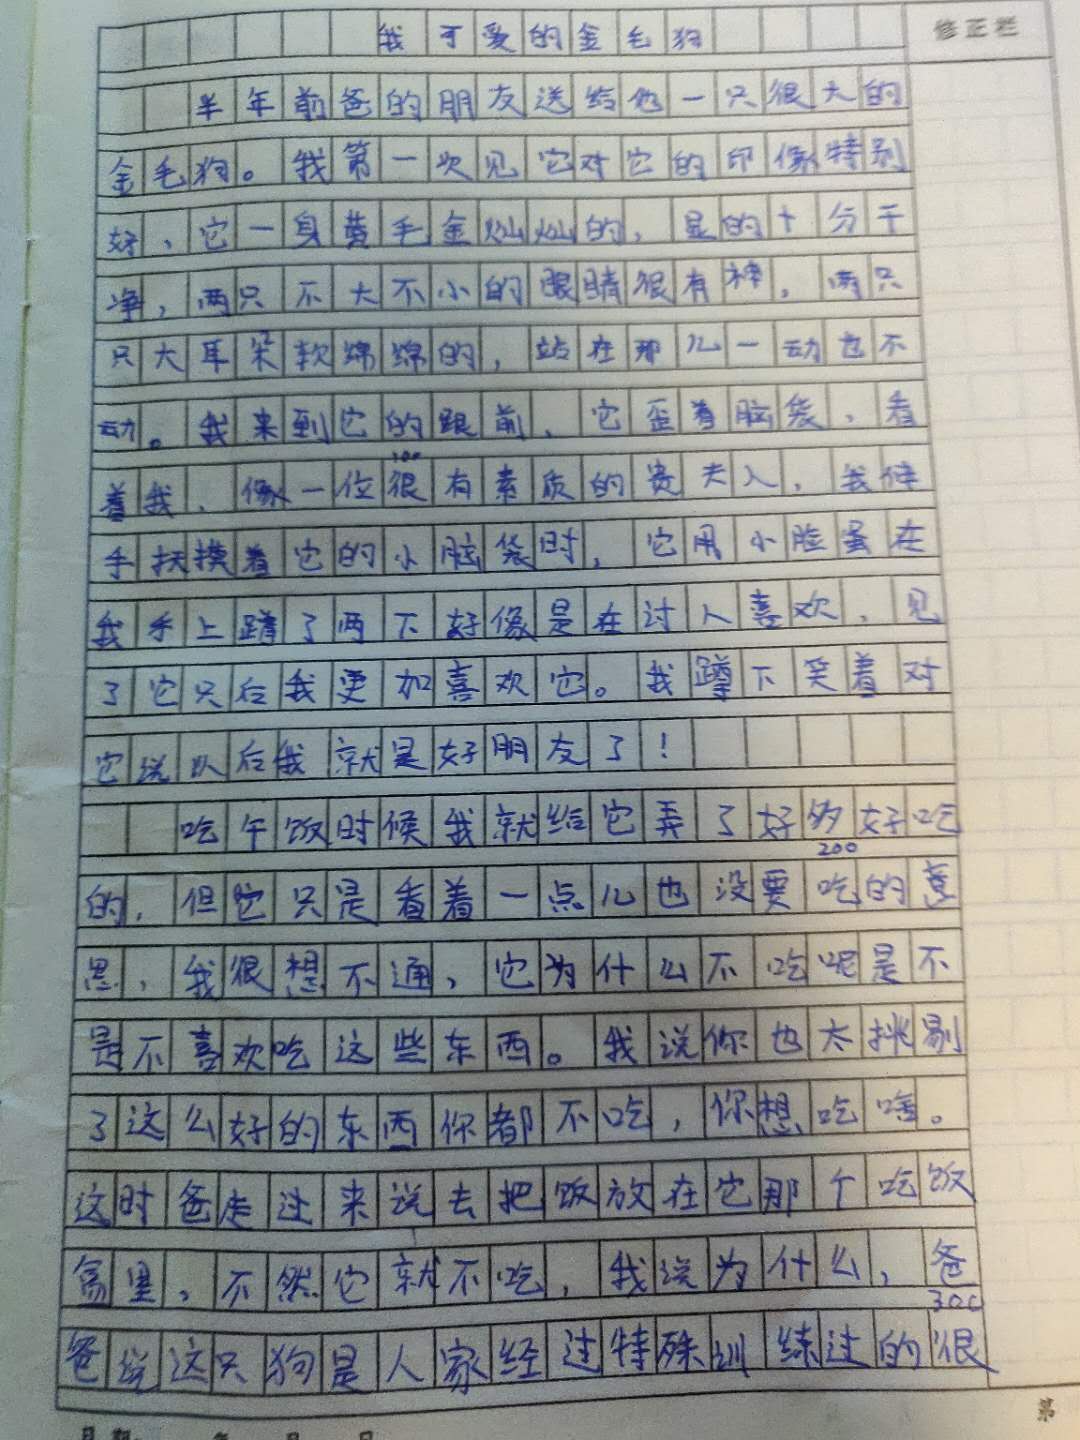 我可爱的金毛狗
修正栏
半年前爸的朋友送给他一只很大的
金毛狗。我第一次见它对它的印像特别
好，它一身黄毛金灿灿的，显的十分干
净，两只不大不小的眼睛很有神，两只
只大耳朵软绵绵的，站在那儿一动也不
动。我来到它的跟前、它歪着脑袋、看
100
着我、像一位很有素质的贵夫人，我伸
手抚摸着它的小脑袋时，它用小脸蛋在
我手上蹭了两下好像是在讨人喜欢，见
了它只后我更加喜欢它。我蹲下笑着对
它说以后我就是好朋友了！
吃午饭时候我就给它弄了好多好吃
200
的，但它只是看着一点儿也没要吃的意
思，我很想不通，它为什么不吃呢是不
是不喜欢吃这些东西。我说你也太挑剔
了这么好的东西你都不吃，你想吃啥。
这时爸走过来说去把饭放在它那个吃饭
里，不然它就不吃，我说为什么，爸
300
爸说这只狗是人家经过特殊训练过的很
第